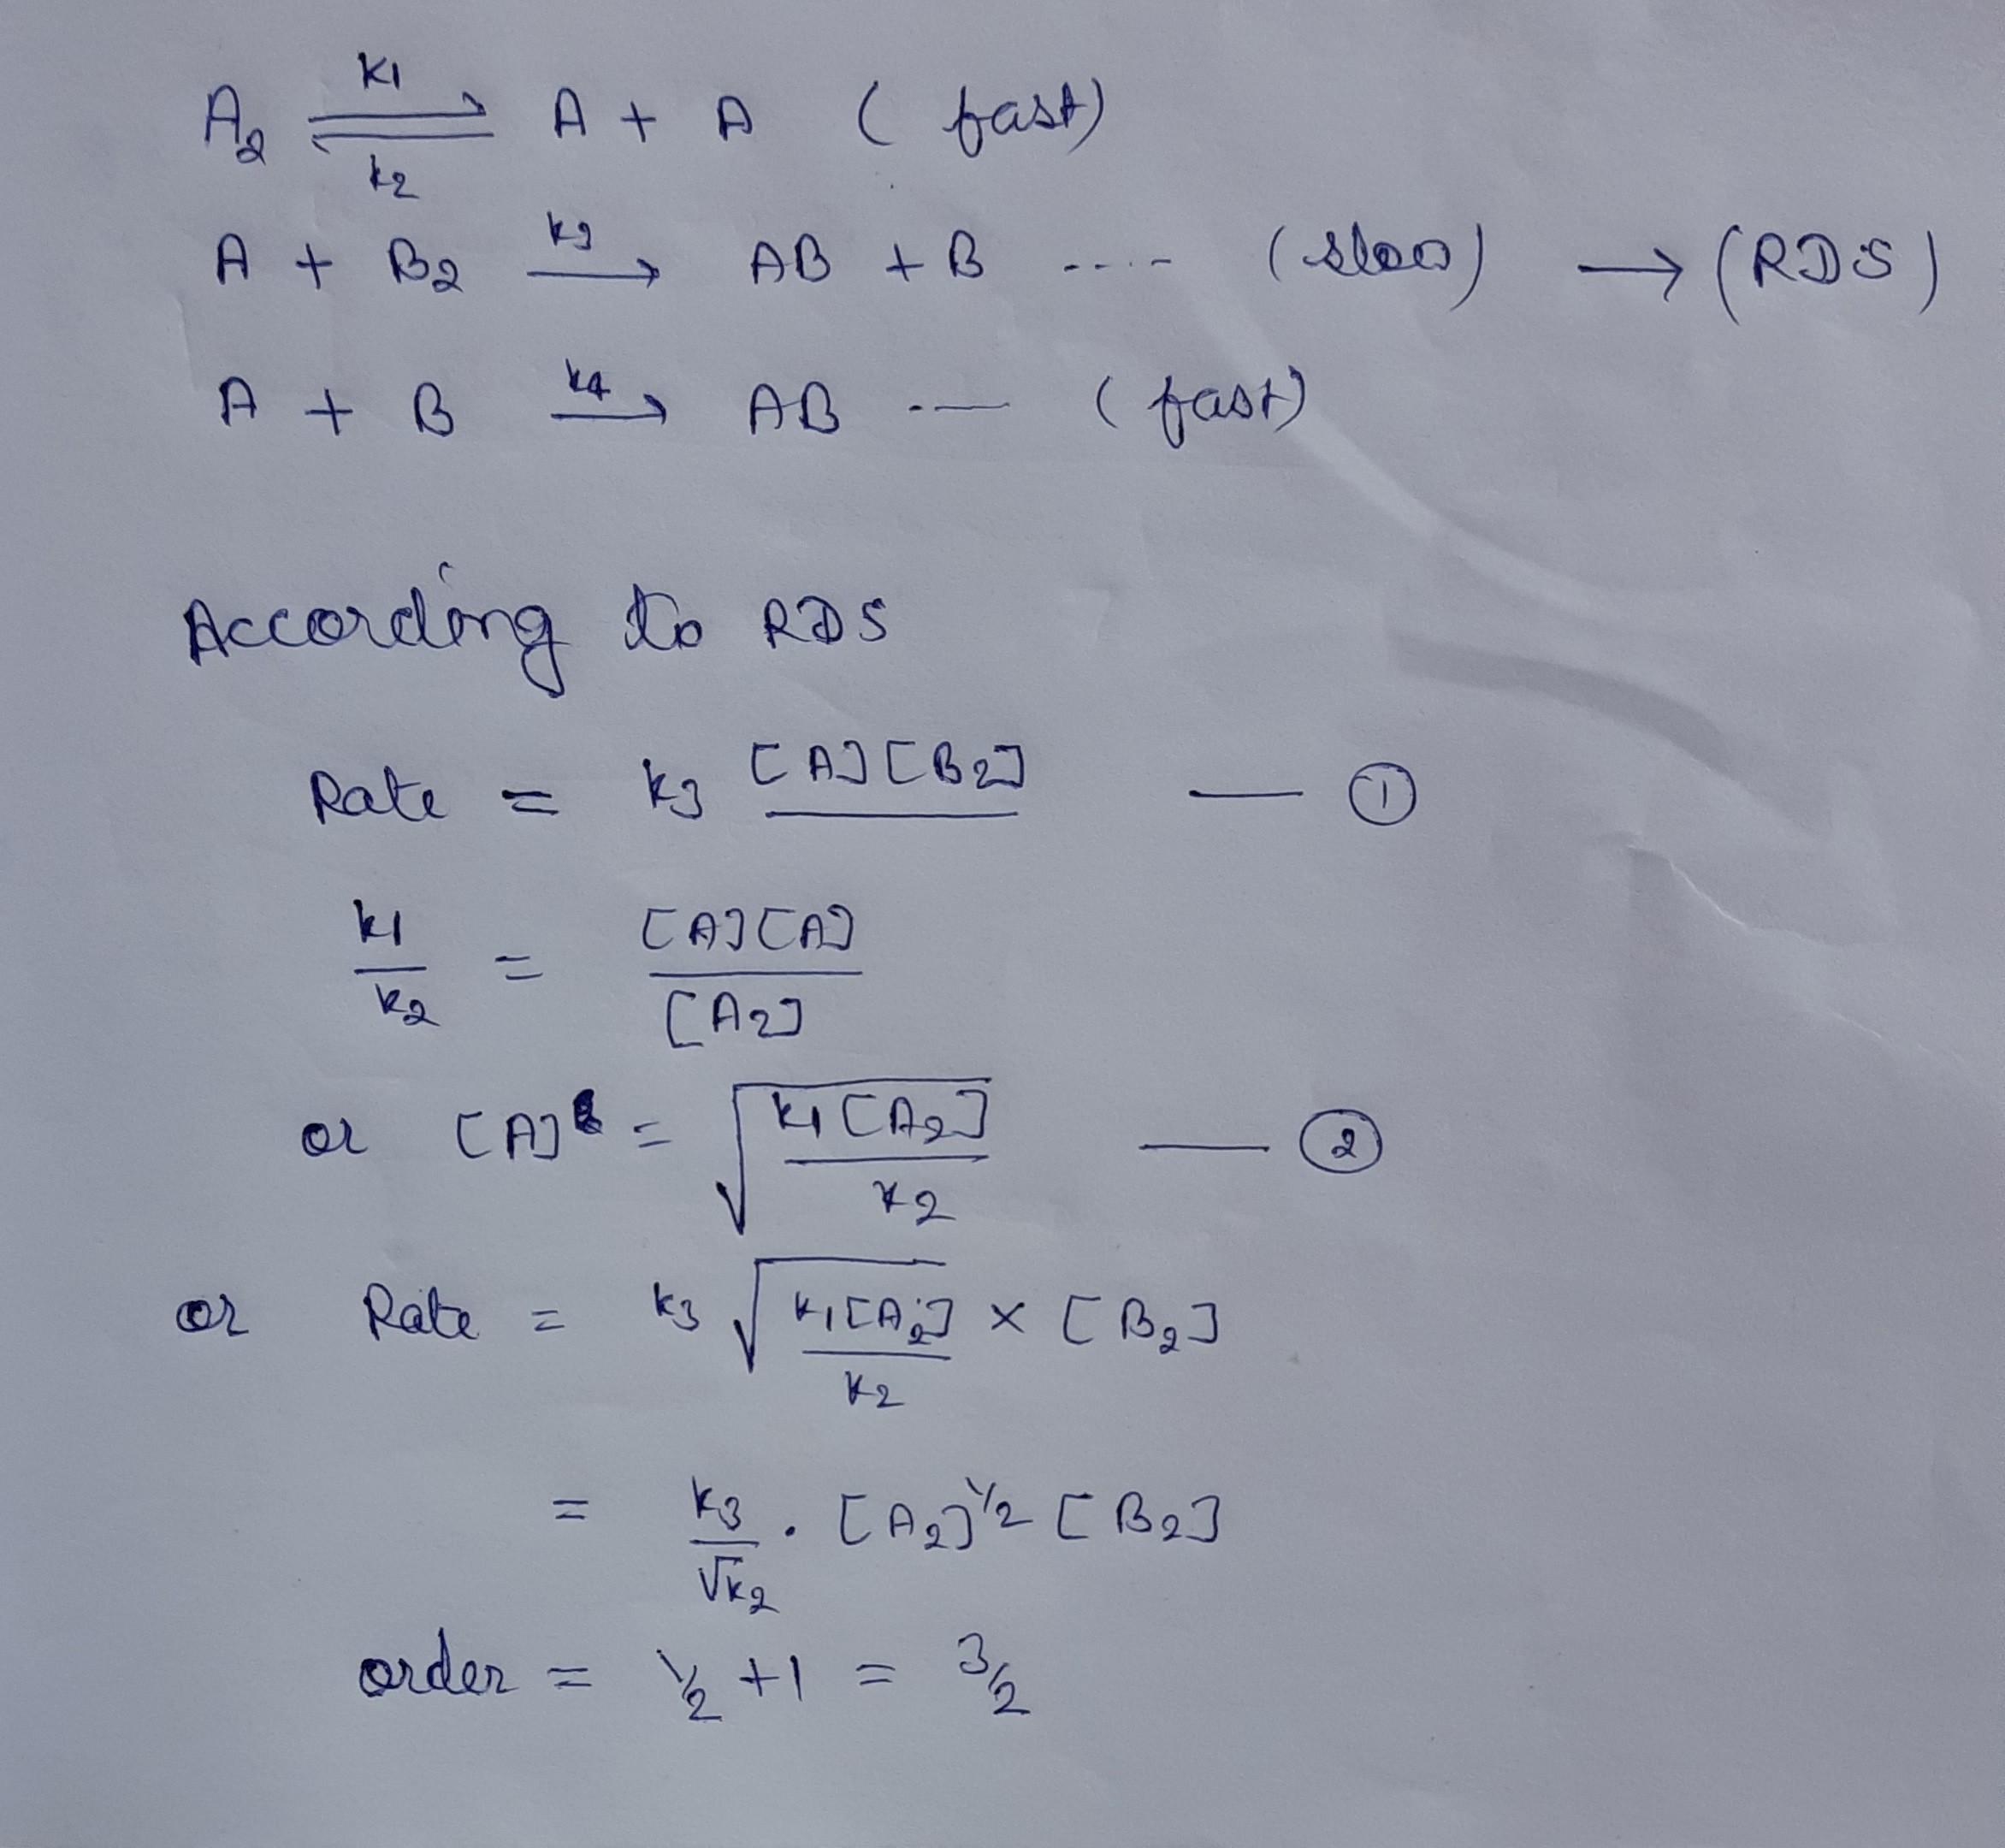 A₂ ⇌ A + A ( fast)
k1
k2
A + B₂ —k3→ AB + B ---- (slow) → (RDS)
A + B —k4→ AB -— (fast)
According to RDS
Rate = k₃ [A][B₂] — ①
k1/k2 = [A][A]/[A₂]
or [A] = √(k1[A₂]/k2) — ②
or Rate = k₃ √(k1[A₂]/k2) × [B₂]
= k₃/√k₂ . [A₂]^1/2 [B₂]
order = 1/2 + 1 = 3/2